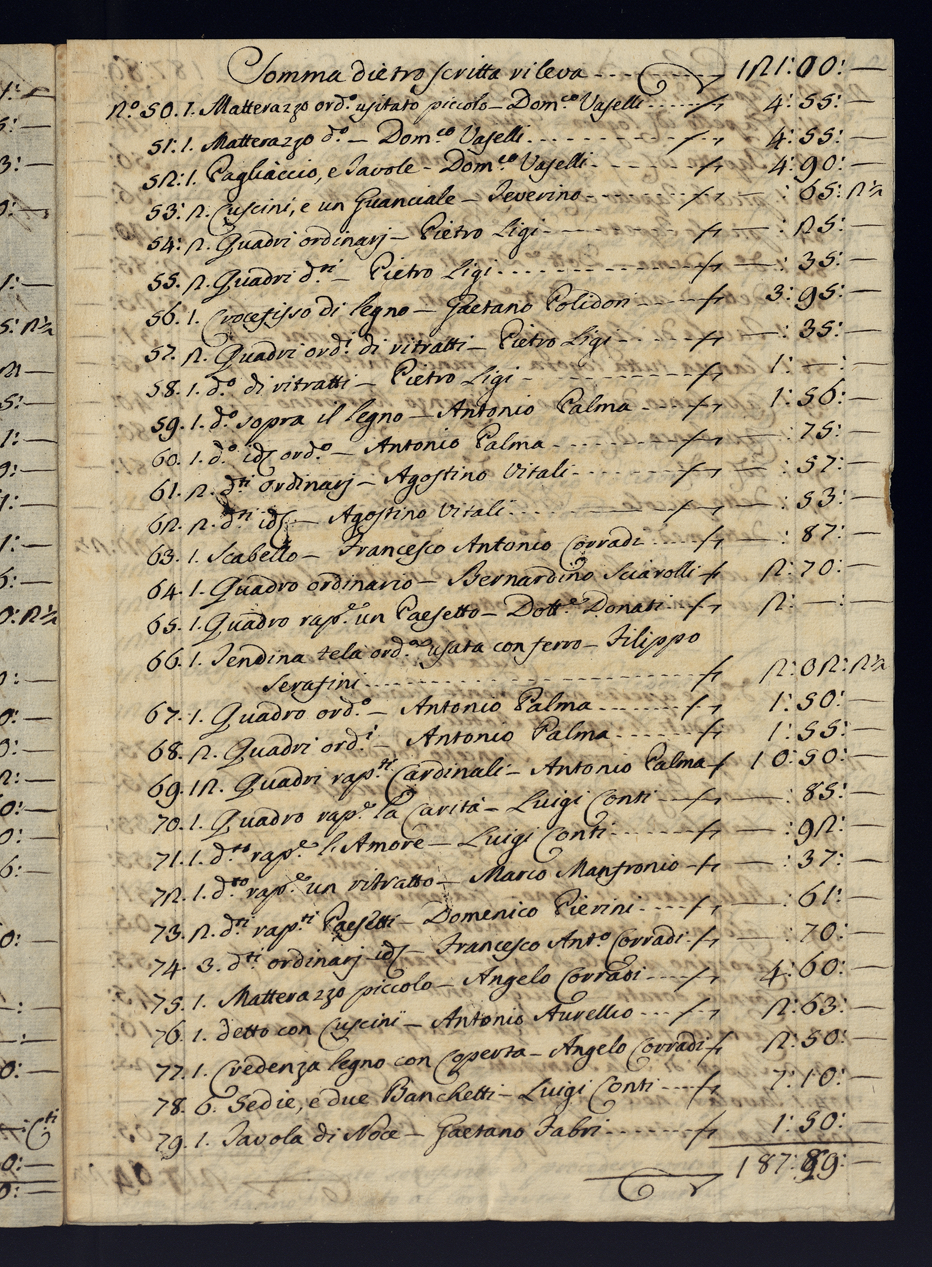 Somma dietro scritta rileva ---- 121:00:—
No. 50. 1. Matterazzo ord.o usitato piccolo — Dom.co Vaselli ---- 4:55:—
51: 1. Matterazzo d.o — Dom.co Vaselli ---- 4:55:—
52: 1. Pagliaccio, e Tavole — Dom.co Vaselli ---- 4:90:—
53: 2. Cuscini, e un Guanciale — Severino ---- —:65:2½
54: 2. Quadri ordinarj — Pietro Ligi ---- —:25:—
55. 2. Quadri d.ri — Pietro Ligi ---- —:35:—
56. 1. Crocefisso di legno — Gaetano Polidori ---- 3:95:—
57. 2. Quadri ord.i di ritratti — Pietro Ligi ---- —:35:—
58. 1. d.o di ritratti — Pietro Ligi ---- 1:—:—
59. 1. d.o sopra il legno — Antonio Palma ---- 1:56:—
60. 1. d.o id. ord.o — Antonio Palma ---- —:75:—
61. 2. d.ti ordinarj — Agostino Vitali ---- —:57:—
62. 2. d.ti id. — Agostino Vitali ---- —:53:—
63. 1. Scabello — Francesco Antonio Corradi ---- —:87:—
64. 1. Quadro ordinario — Bernardino Sciarolli — 2:70:—
65. 1. Quadro rap.e un Paesetto — Dott.e Donati ---- 2:—:—
66. 1. Tendina tela ord.a usata con ferro — Filippo
Serafini ---- 2:02:2½
67. 1. Quadro ord.o — Antonio Palma ---- 1:50:—
68. 2. Quadri ord.i — Antonio Palma ---- 1:55:—
69. 12. Quadri rap.ti Cardinali — Antonio Palma — 10:50:—
70. 1. Quadro rap.e la Carità — Luigi Conti ---- —:85:—
71. 1. d.to rap.e l'Amore — Luigi Conti ---- —:92:—
72. 1. d.to rap.e un ritratto — Marco Manfronio — —:37:—
73. 2. d.ti rap.ti Paesetti — Domenico Pierini ---- —:61:—
74. 3. d.ti ordinarj id. — Francesco Ant.o Corradi — —:70:—
75. 1. Matterazzo piccolo — Angelo Corradi ---- 4:60:—
76. 1. detto con Cuscini — Antonio Aurellio ---- 2:63:—
77. 1. Credenza legno con Coperta — Angelo Corradi — 2:50:—
78. 6. Sedie, e due Banchetti — Luigi Conti ---- 7:10:—
79. 1. Tavola di Noce — Gaetano Fabri ---- 1:50:—
187:89:—